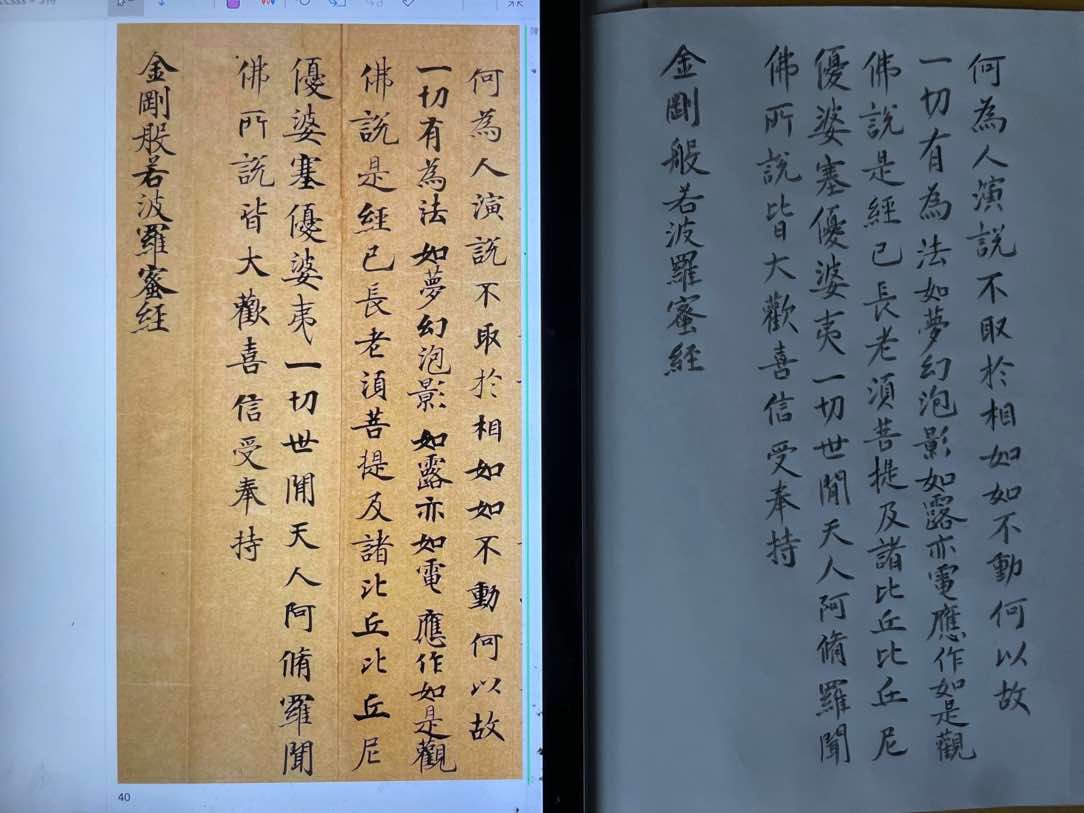 何為人演說不取於相如如不動何以故
一切有為法如夢幻泡影如露亦如電應作如是觀
佛說是經已長老須菩提及諸比丘比丘尼
優婆塞優婆夷一切世間天人阿脩羅聞
佛所說皆大歡喜信受奉持
金剛般若波羅蜜經
40
何為人演說不取於相如如不動何以故
一切有為法如夢幻泡影如露亦電應作如是觀
佛說是經已長老須菩提及諸比丘比丘尼
優婆塞優婆夷一切世間天人阿脩羅聞
佛所說皆大歡喜信受奉持
金剛般若波羅蜜經